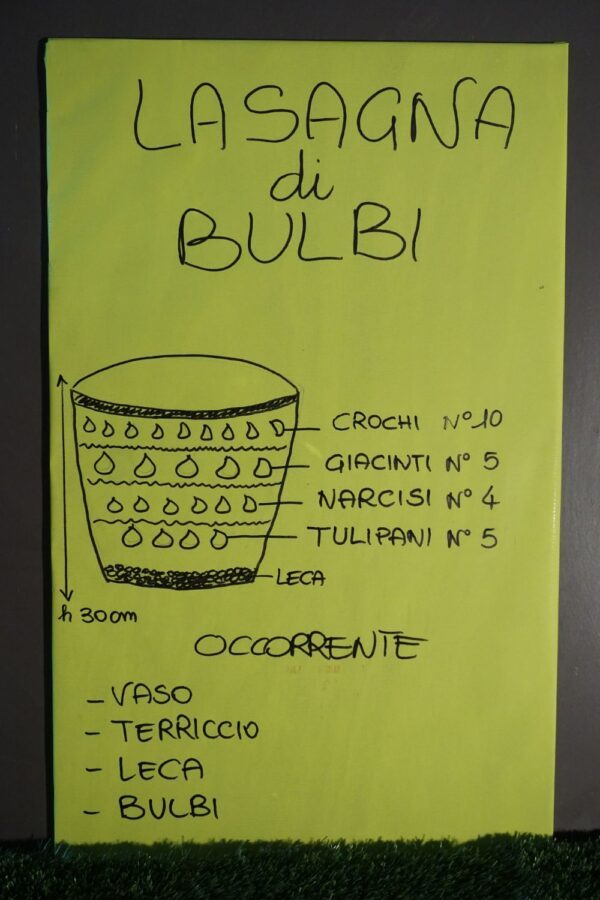 LASAGNA
di
BULBI
CROCHI N° 10
GIACINTI N° 5
NARCISI N° 4
TULIPANI N° 5
LECA
h 30cm
OCCORRENTE
- VASO
- TERRICCIO
- LECA
- BULBI